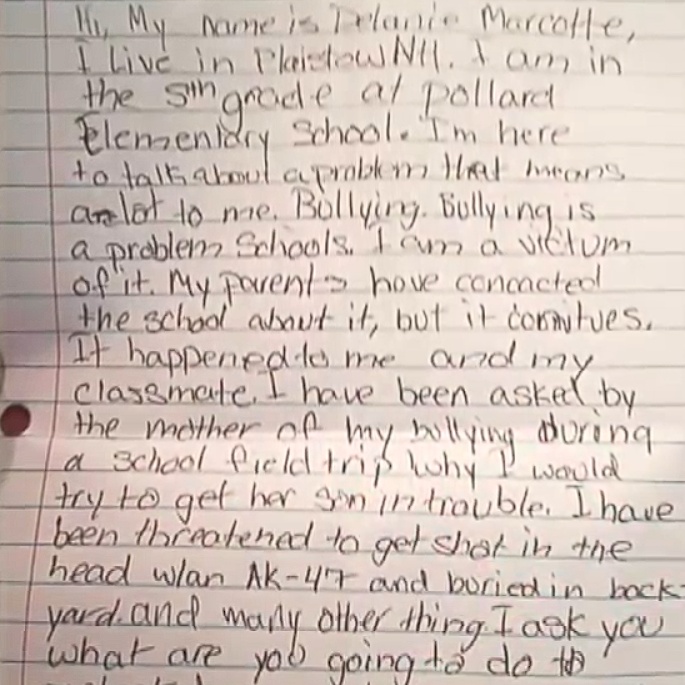 Hi, My name is Delanie Marcotte,
I Live in Plaistow NH. I am in
the 5th grade at pollard
Elementary School. I'm here
to talk about a problem that means
a lot to me. Bullying. Bullying is
a problem Schools. I am a victum
of it. My parents have concacted
the school about it, but it contitues.
It happened to me and my
classmate. I have been asked by
the mother of my bullying during
a school field trip why I would
try to get her son in trouble. I have
been threatened to get shot in the
head w/an AK-47 and buried in back-
yard and many other thing. I ask you
what are you going to do to